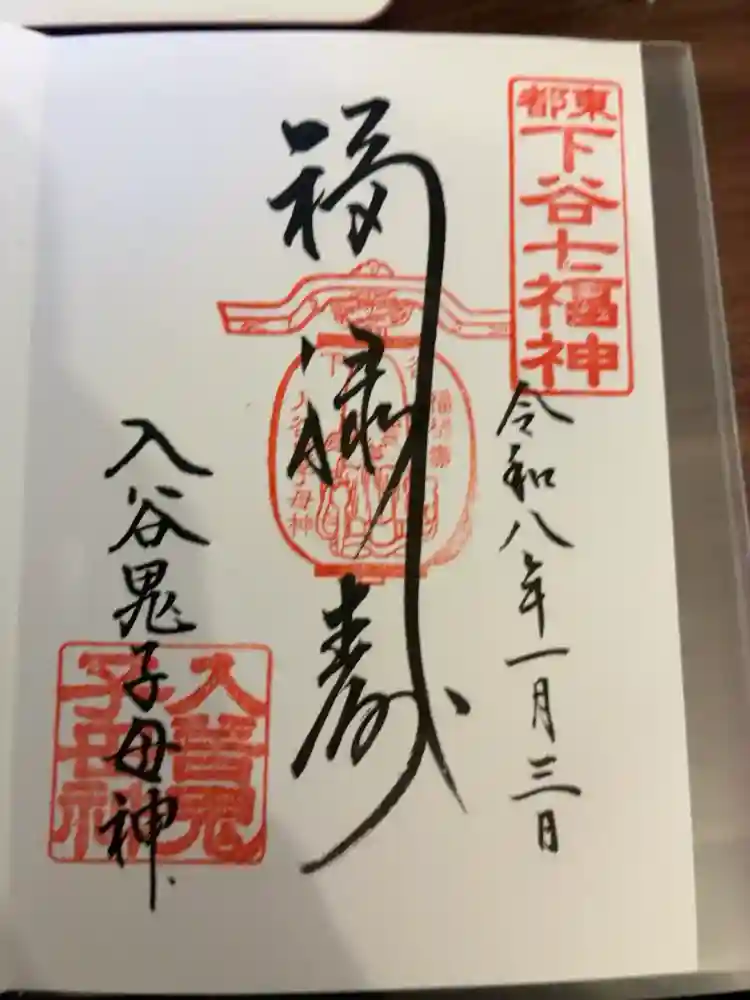 東都
下谷七福神
令和八年一月三日
福禄寿
下谷
入谷鬼子母神
入谷鬼子母神